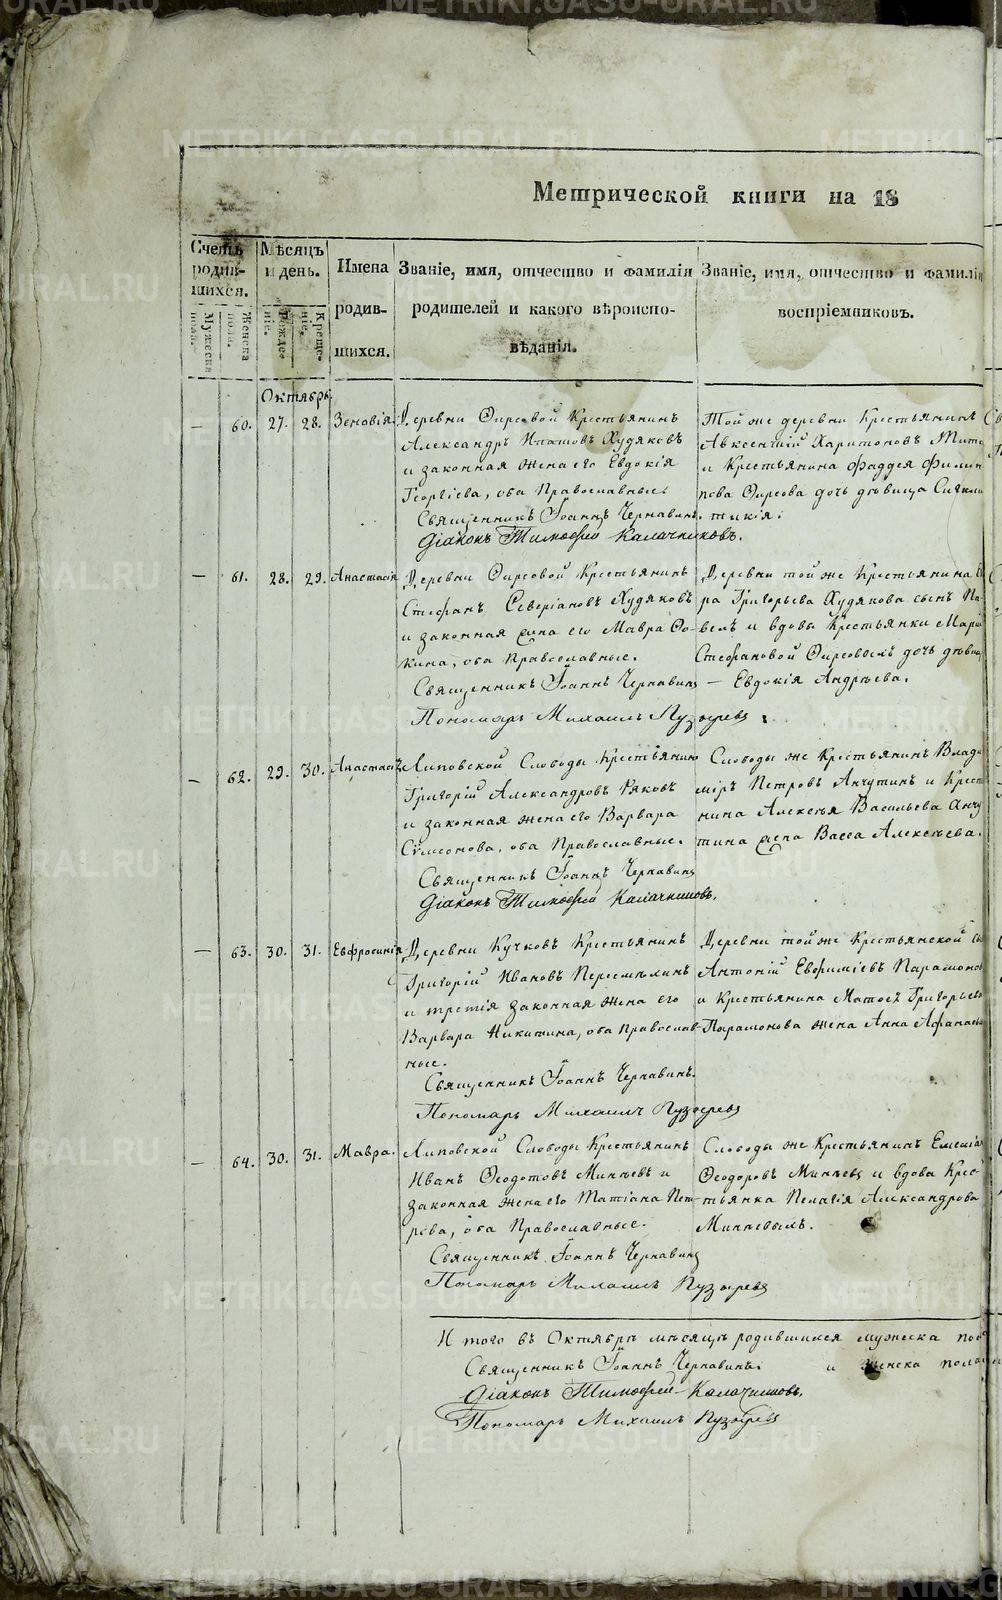 Метрической книги на 18
Счетъ родив-шихся.
Мужеска пола.
Женска пола.
Мѣсяцъ и день.
Рожде-ніе.
Креще-ніе.
Имена родив-шихся.
Званіе, имя, отчество и фамилія родителей и какого вѣроиспо-вѣданія.
Званіе, имя, отчество и фамилія
воспріемниковъ.
Октябрь
— 60. 27. 28. Зеновія.
Деревни Фирсовой Крестьянинъ
Александръ Ипатовъ Худяковъ
и законная жена его Евдокія
Георгіева, оба Православные.
Священникъ Іоаннъ Чернавинъ.
Діаконъ Тимофей Калачниковъ.
Той же деревни Крестьянинъ
Авксентій Харитоновъ
и Крестьянина Фаддея Филип
пова Фирсова дочь дѣвица Синкли
тикія.
— 61. 28. 29. Анастасія
Деревни Фирсовой Крестьянинъ
Стефанъ Северіановъ Худяковъ
и законная жена его Мавра Фо-
кина, оба Православные.
Священникъ Іоаннъ Чернавинъ
Пономарь Михаилъ Пузыревъ
Деревни той же Крестьянина
ра Григорьева Худякова сынъ Па-
велъ и вдовы Крестьянки Маріи
Стефановой Фирсовыхъ дочь дѣвица
— Евдокія Андрѣева.
— 62. 29. 30. Анастасія
Липовской Слободы Крестьянинъ
Григорій Александровъ Ряковъ
и законная жена его Варвара
Сумеонова, оба Православные.
Священникъ Іоаннъ Чернавинъ
Діаконъ Тимофей Калачниковъ.
Слободы же Крестьянинъ Влади
міръ Петровъ Анчутинъ и Крест
нина Алексѣя Васильева Анчу
тина жена Васса Алексѣева.
— 63. 30. 31. Евфросинія
Деревни Кучковъ Крестьянинъ
Григорій Ивановъ
и третія законная жена его
Варвара Никитина, оба Православ-
ные.
Священникъ Іоаннъ Чернавинъ.
Пономарь Михаилъ Пузыревъ
Деревни той же Крестьянской
Антоній Евфиміевъ Парамонов
и Крестьянина Матвея Григорьева
Парамонова жена Анна Афанась
— 64. 30. 31. Мавра.
Липовской Слободы Крестьянинъ
Иванъ Феодотовъ Минѣевъ и
законная жена его Татіана Пет-
рова, оба Православные.
Священникъ Іоаннъ Чернавинъ
Пономарь Михаилъ Пузыревъ
Слободы же Крестьянинъ Емеліан
Феодоровъ Минѣевъ и вдова Крес-
тьянка Пелагія Александрова
Минѣевыхъ.
И того въ Октябрѣ мѣсяцѣ родившихся мужеска пол
и женска пола
Священникъ Іоаннъ Чернавинъ.
Діаконъ Тимофей Калачниковъ.
Пономарь Михаилъ Пузыревъ
METRIKI.GASO-URAL.RU